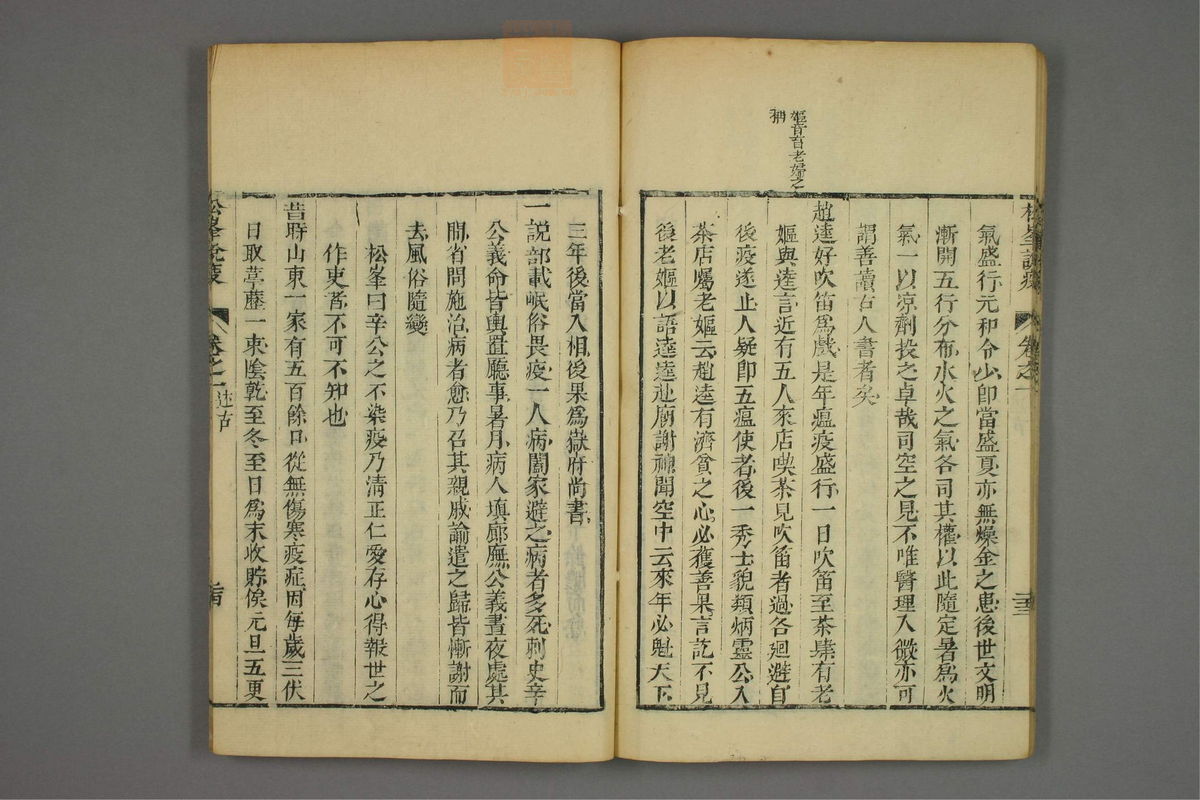 松峯說疫
卷之一
氣盛行元和令少卽當盛夏亦無燥金之患後世文明
漸開五行分布水火之氣各司其權以此隨定暑爲火
氣一以凉劑投之卓哉司空之見不唯醫理入微亦可
謂善讀古人書者矣
嫗音䓇老婦之
稱
趙逵好吹笛爲戲是年瘟疫盛行一日吹笛至茶肆有老
嫗與逵言近有五人來店喫茶見吹笛者過各廻避自
後疫遂止人疑卽五瘟使者後一秀士貌類炳靈公入
茶店屬老嫗云趙逵有濟貧之心必獲善果言訖不見
後老嫗以語逵逵赴廟謝神聞空中云來年必魁天下
三年後當入相後果爲嶽府尚書
一說部載岷俗畏疫一人病闔家避之病者多死刺史辛
公義命皆輿置廳事暑月病人塡廊廡公義晝夜處其
間省問施治病者愈乃召其親戚諭遣之歸皆慚謝而
去風俗隨變
松峯曰辛公之不染疫乃清正仁愛存心得報世之
作吏者不可不知也
昔時山東一家有五百餘口從無傷寒疫症因每歲三伏
日取葶藶一束陰乾至冬至日爲末收貯俟元旦五更
松峯說疫
卷之一 述古